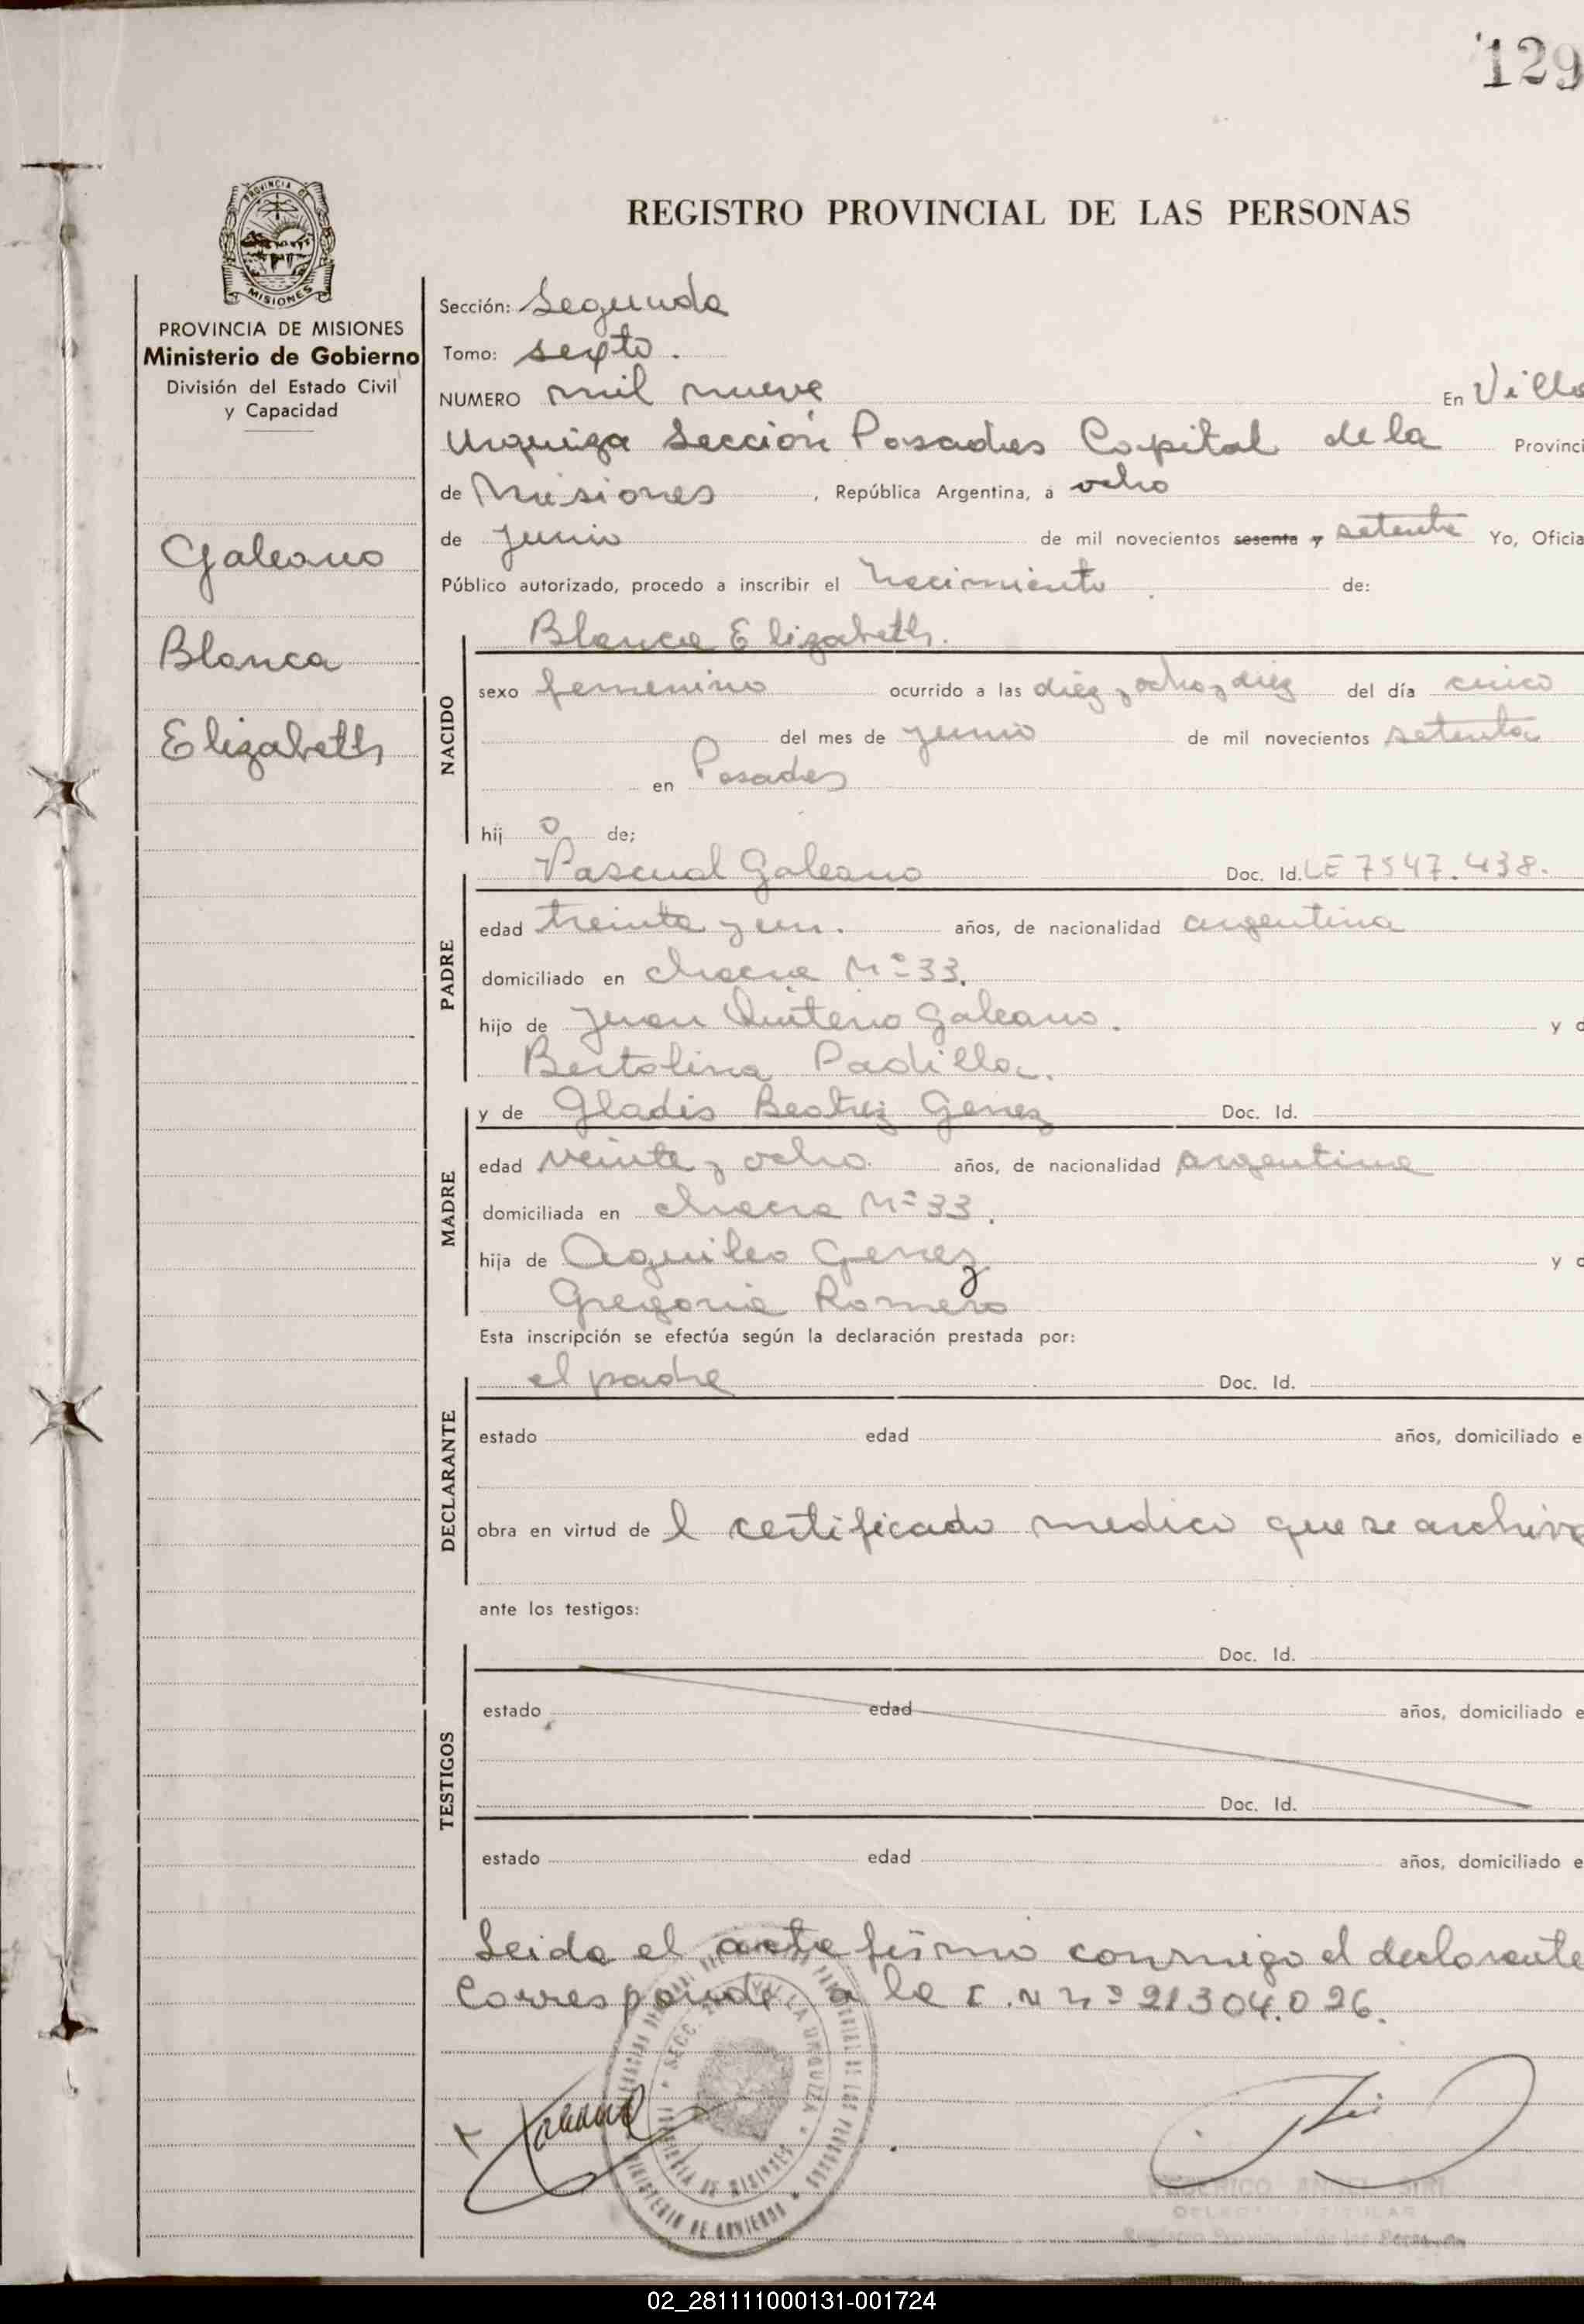 129
REGISTRO PROVINCIAL DE LAS PERSONAS
PROVINCIA DE MISIONES
Ministerio de Gobierno
División del Estado Civil
y Capacidad
Galeano
Blanca
Elizabeth
Sección: Segunda
Tomo: sexto.
NUMERO mil nueve En Villa
Urquiza Sección Posadas Capital de la Provinci
de Misiones, República Argentina, a ocho
de Junio de mil novecientos sesenta y setenta Yo, Oficia
Público autorizado, procedo a inscribir el Nacimiento. de:
Blanca Elizabeth.
NACIDO
sexo femenino ocurrido a las diez y ocho y diez del día cinco
del mes de junio de mil novecientos setenta
en Posadas
hij o de;
Pascual Galeano Doc. Id. LE 7547.438.
PADRE
edad treinta y un. años, de nacionalidad argentina
domiciliado en chacra Nº 33.
hijo de Juan Quiterio Galeano. y d
Bertolina Padilla.
MADRE
y de Gladis Beatriz Genez Doc. Id.
edad veinte y ocho. años, de nacionalidad argentina
domiciliada en chacra Nº 33.
hija de Aquileo Genez y d
Gregoria Romero
Esta inscripción se efectúa según la declaración prestada por:
el padre Doc. Id.
DECLARANTE
estado edad años, domiciliado e
obra en virtud de l certificado medico que se archiva
ante los testigos:
Doc. Id.
TESTIGOS
estado edad años, domiciliado e
Doc. Id.
estado edad años, domiciliado e
Leida el acta firmo conmigo el declarante
Corresponde a la C.N Nº 21304.026.
SECC. VILLA URQUIZA
PROVINCIA DE MISIONES
MINISTERIO DE GOBIERNO
Galeano
Registro Provincial de las Personas
02_281111000131-001724